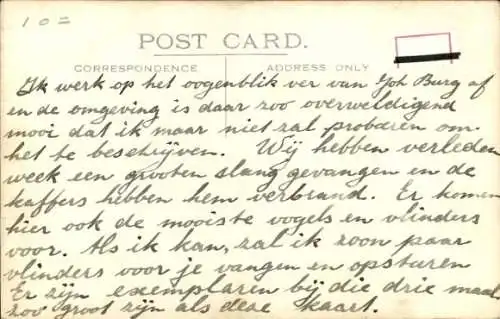 10=
POST CARD.
CORRESPONDENCE
ADDRESS ONLY
Ik werk op het oogenblik ver van Joh Burg af
en de omgeving is daar zoo overweldigend
mooi dat ik maar niet zal proberen om
het te beschrijven. Wij hebben verleden
week een grooten slang gevangen en de
kaffers hebben hem verbrand. Er komen
hier ook de mooiste vogels en vlinders
voor. Als ik kan, zal ik zoon paar
vlinders voor je vangen en opsturen
Er zijn exemplaren bij die drie maal
zoo groot zijn als deze kaart.